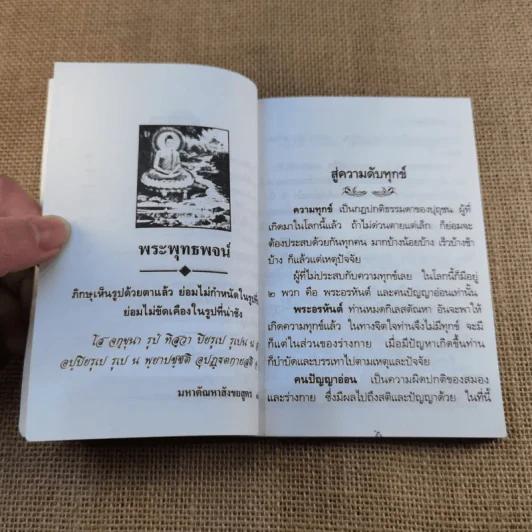 พระพุทธพจน์
ภิกษุเห็นรูปด้วยตาแล้ว ย่อมไม่กำหนัดในรูปที่
ย่อมไม่ขัดเคืองในรูปที่น่าชัง
โส จกฺขุนา รูปํ ทิสฺวา ปิยรูเป รูเปน น
อปฺปิยรูเป รูเป น พฺยาปชฺชติ
มหาตัณหาสังขยสูตร
สู่ความดับทุกข์
ความทุกข์ เป็นกฎปกติธรรมดาของปุถุชน ผู้ที่
เกิดมาในโลกนี้แล้ว ถ้าไม่ด่วนตายแต่เล็ก ก็ย่อมจะ
ต้องประสบด้วยกันทุกคน มากบ้างน้อยบ้าง เร็วบ้างช้า
บ้าง ก็แล้วแต่เหตุปัจจัย
ผู้ที่ไม่ประสบกับความทุกข์เลย ในโลกนี้ก็มีอยู่
๒ พวก คือ พระอรหันต์ และคนปัญญาอ่อนเท่านั้น
พระอรหันต์ ท่านหมดกิเลสตัณหา อันจะพาให้
เกิดความทุกข์แล้ว ในทางจิตใจท่านจึงไม่มีทุกข์ จะมี
ก็แต่ในส่วนของร่างกาย เมื่อมีปัญหาเกิดขึ้นท่าน
ก็บำบัดและบรรเทาไปตามเหตุและปัจจัย
คนปัญญาอ่อน เป็นความผิดปกติของสมอง
และร่างกาย ซึ่งมีผลไปถึงสติและปัญญาด้วย ในที่นี้